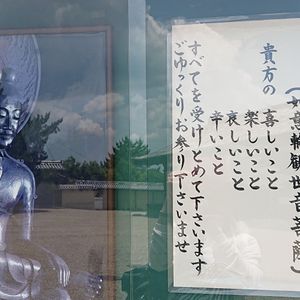 如意輪観世音菩薩
貴方の
喜しいこと
楽しいこと
哀しいこと
辛いこと
すべてを受けとめて下さいます
ごゆっくりお参り下さいませ